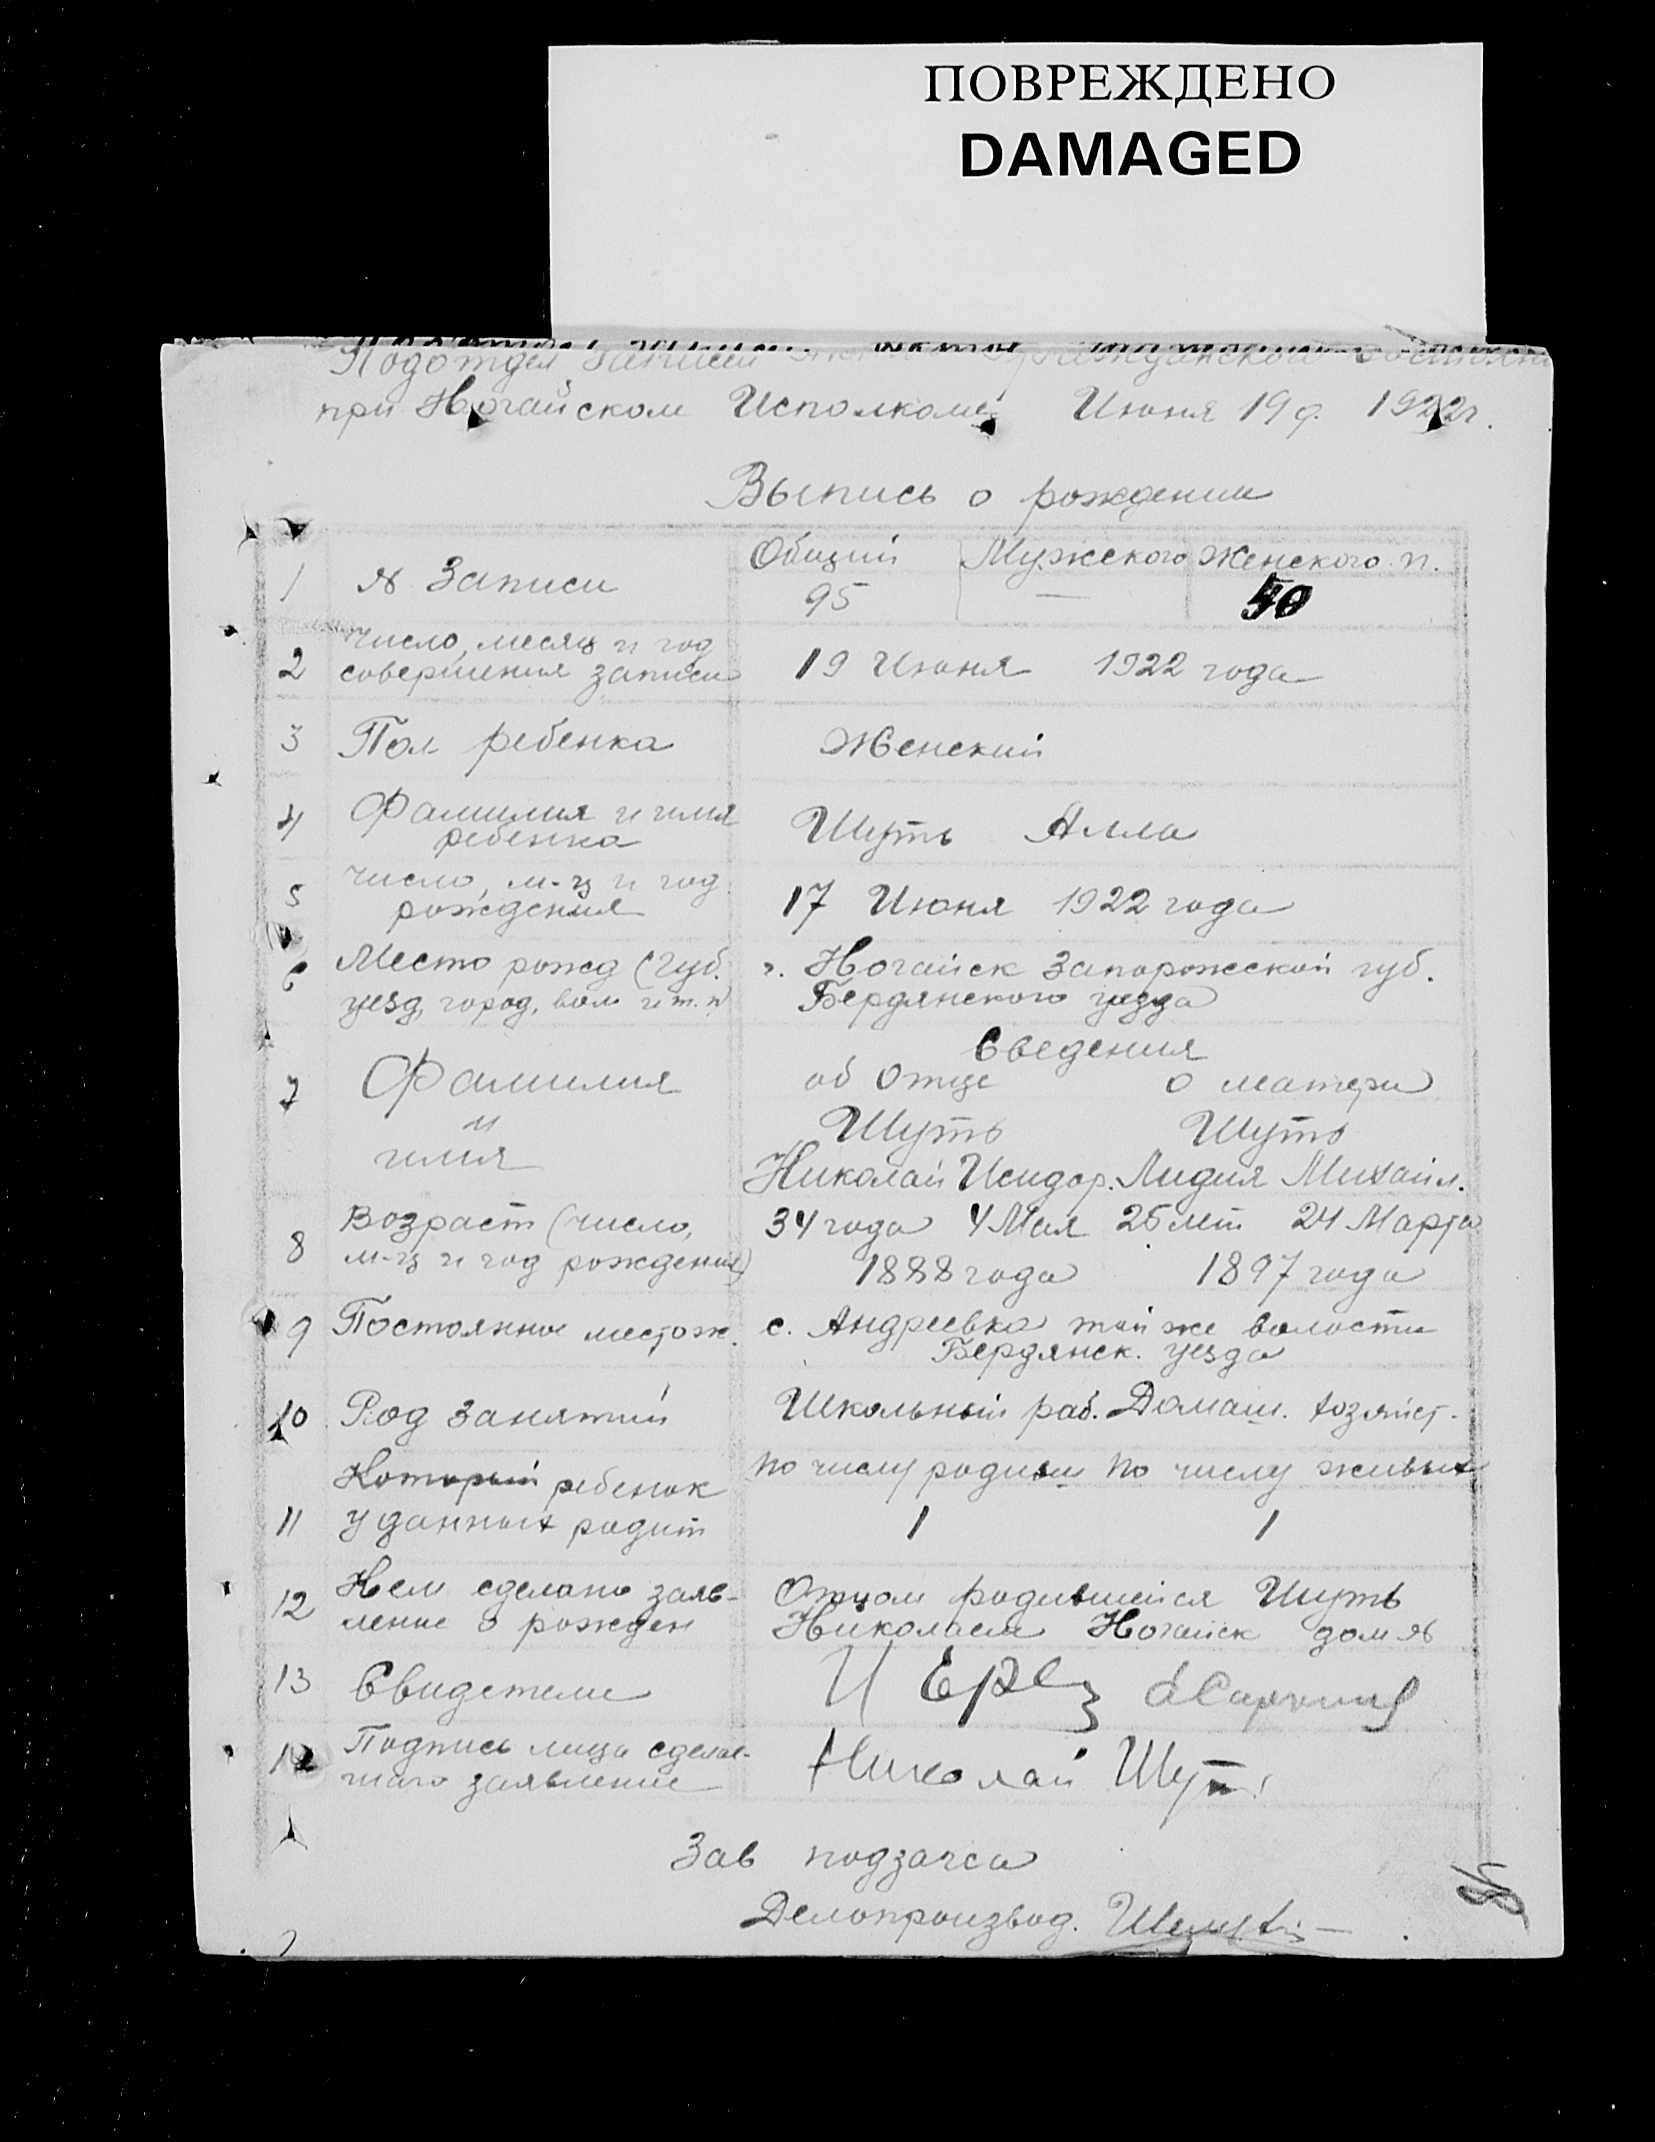 ПОВРЕЖДЕНО
DAMAGED
Подотдел Записи
при Ногайском Исполкоме Июня 19 д. 1922 г.
Выпись о рождении
1 № Записи Общий Мужского Женского п.
95 — 50
2 Число, месяц и год
совершения записи 19 Июня 1922 года
3 Пол ребенка Женский
4 Фамилия и имя
ребенка Шуть Алла
5 Число, м-ц и год
рождения 17 Июня 1922 года
6 Место рожд (губ. г. Ногайск Запорожской губ.
уезд, город, вол и т. п) Бердянского уезда
Сведения
7 Фамилия об Отце о матери
и Шуть Шуть
имя Николай Исидор. Лидия Михайл.
8 Возраст (число, 34 года 4 Мая 25 лет 24 Марта
м-ц и год рождения) 1888 года 1897 года
9 Постоянное местож. с. Андреевка той же волости
Бердянск. уезда
10 Род занятий Школьный раб. Домаш. хозяйст.
Который ребенок по числу родивш по числу живых
11 у данных родит 1 1
12 Кем сделано заяв- Отцом родившейся Шуть
ление о рожден Николаем Ногайск дом №
13 Свидетели
14 Подпись лица сделав-
шаго заявление Николай Шуть
Зав подзагса
Делопроизвод.